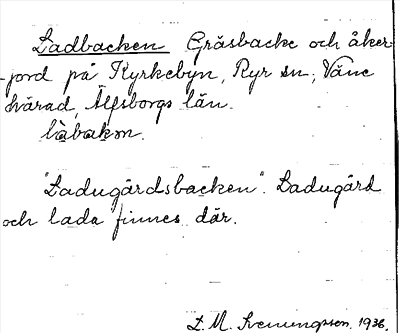 Ladbacken Gräsbacke och åker-
jord på Kyrkebyn, Ryr sn, Väne
härad, Älfsborgs län.
làbakən.
"Ladugårdsbacken". Ladugård
och lada finnes där.
D. M. Svenningsson. 1936.